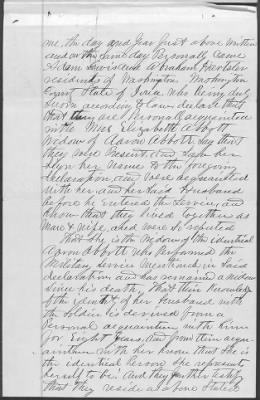 me, the day and year first above written
and on the same day Personally came
Adam Lewis and Abraham
residents of Washington Washington
County State of Iowa who being duly
sworn according to law declare that
that they are Personally acquainted
with Mrs Elizabeth Abbott
widow of Aaron Abbott say that
they were Present and saw her
sign her name to the foregoing
declaration, and were acquainted
with her and her said Husband
before he entered the service, and
know that they lived together as
Man & wife, and were so reputed
That she is the widow of the identical
Aaron Abbott who performed the
Military service mentioned in said
declaration and has remained a widow
since his death, That their knowledge
of the identity of her Husband with
the soldier is derived from a
Personal acquaintance with him
for Eight years. And from their acqu
aintance with her know that she is
the identical Person she represents
herself to be. And they further testify
that they reside as above stated